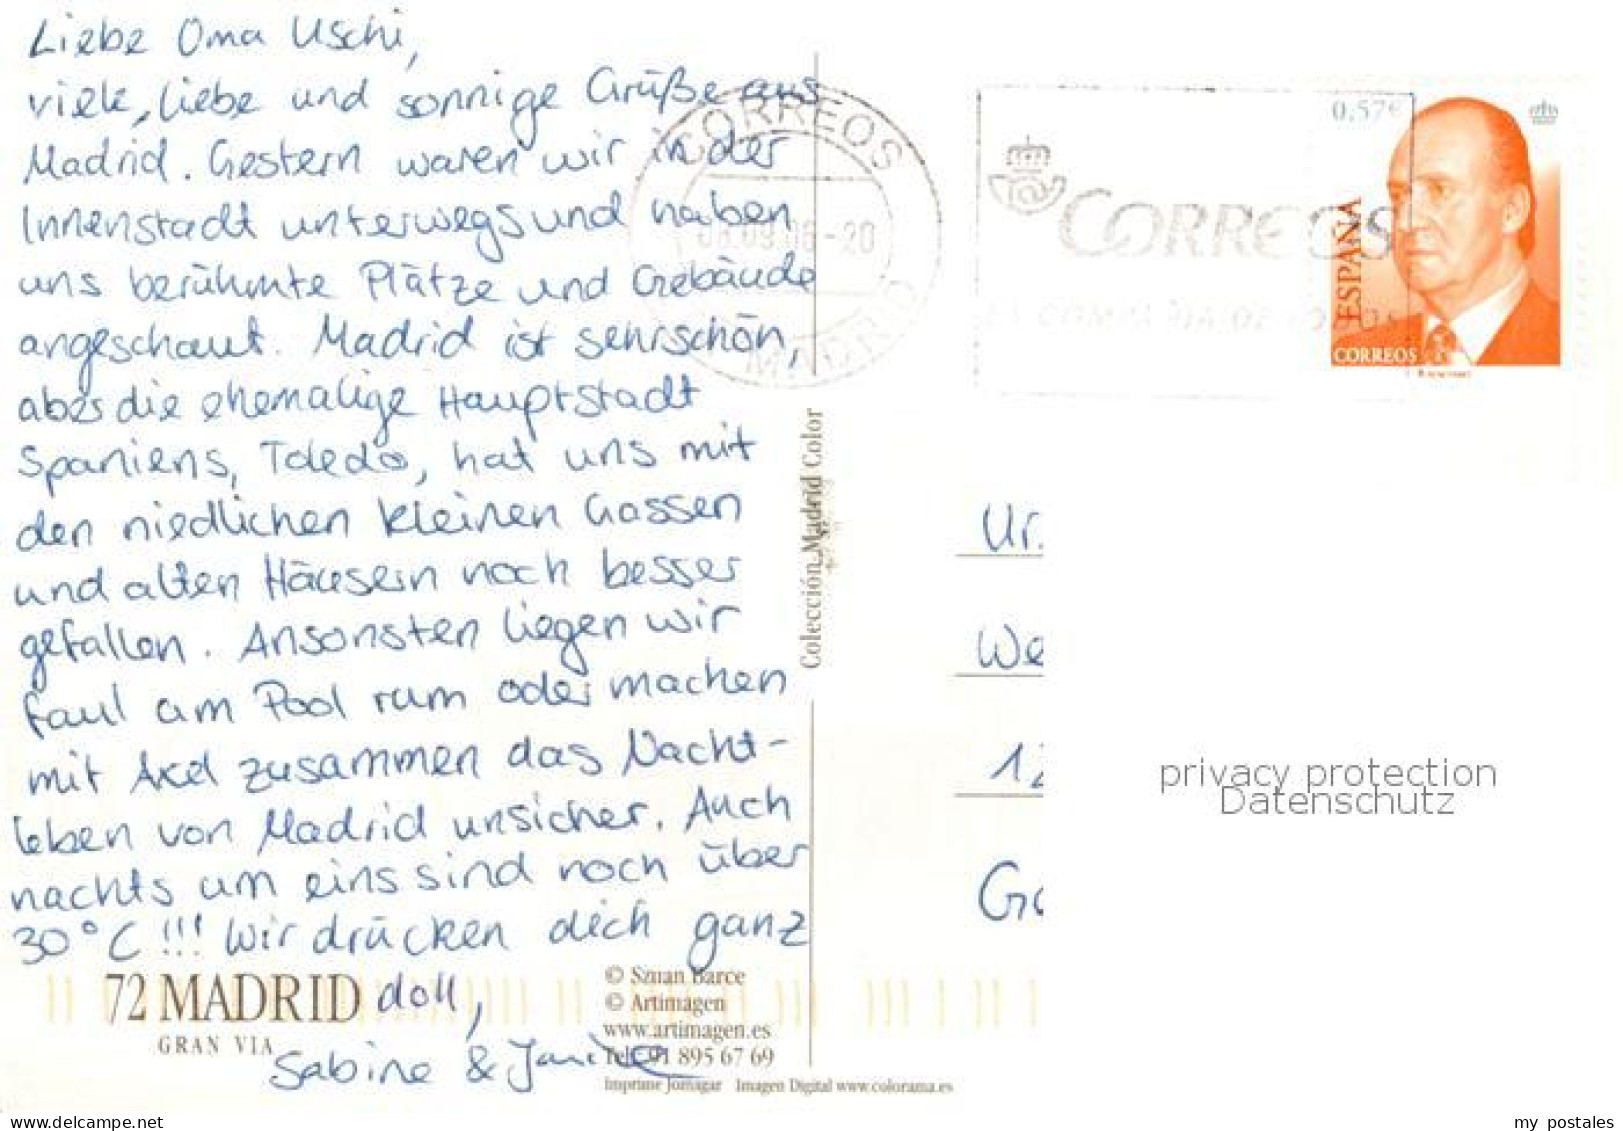 Liebe Oma Uschi,
viele, liebe und sonnige Grüße aus
Madrid. Gestern waren wir in der
Innenstadt unterwegs und haben
uns berühmte Plätze und Gebäude
angeschaut. Madrid ist sehr schön,
aber die ehemalige Hauptstadt
Spaniens, Toledo, hat uns mit
den niedlichen kleinen Gassen
und alten Häusern noch besser
gefallen. Ansonsten liegen wir
faul am Pool rum oder machen
mit Axel zusammen das Nacht-
leben von Madrid unsicher. Auch
nachts um eins sind noch über
30°C!!! Wir drücken dich ganz
doll,
Sabine &
72 MADRID
GRAN VIA
© Barce
© Artimagen
www.artimagen.es
Tel. 91 895 67 69
Imprime Jomagar Imagen Digital www.colorama.es
Colección Madrid Color
CORREOS
-20
MADRID
CORREOS
LA COMPAÑIA DE TODOS
0,57€
ESPAÑA
CORREOS
Ur.
We
12
privacy protection
Datenschutz
www.delcampe.net
my_postales